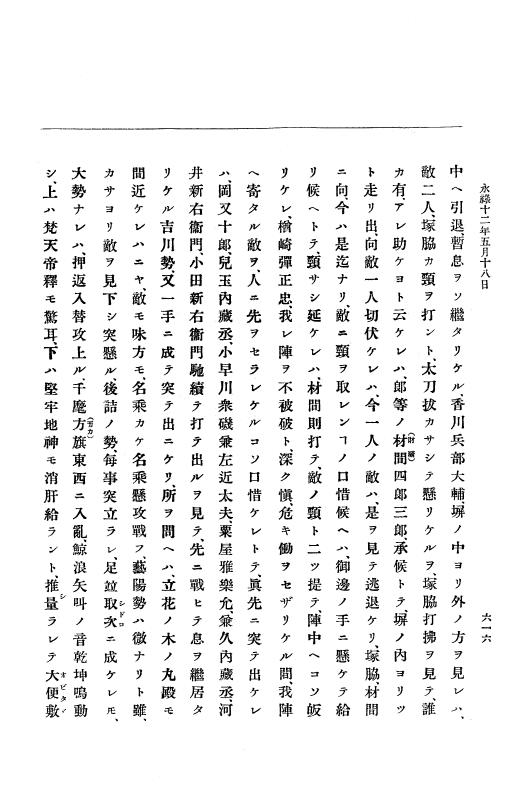 永祿十二年五月十八日
六一六
中ヘ引退、暫息ヲソ繼タリケル、香川兵部大輔、塀ノ中ヨリ外ノ方ヲ見レハ、
敵二人、塚脇カ頸ヲ打ント、太刀拔カサシテ懸リケルヲ、塚脇打拂ヲ見テ、誰
カ有、アレ助ケヨト云ケレハ、郎等ノ材間四郎三郎、承候トテ、塀ノ內ヨリツ
(財滿)
ト走リ出、向敵一人切伏ケレハ、今一人ノ敵ハ、是ヲ見テ逃退ケリ、塚脇、材間
ニ向、今ハ是迄ナリ、敵ニ頸ヲ取レンヿノ口惜候ヘハ、御邊ノ手ニ懸ケテ給
リ候ヘトテ、頸サシ延ケレハ、材間則打テ、敵ノ頸ト二ツ提テ、陣中ヘコソ皈
リケレ、楢崎彈正忠、我レ陣ヲ不被破ト、深ク愼、危キ働ヲセザリケル間、我陣
ヘ寄タル敵ヲ、人ニ先ヲセラレケルコソ口惜ケレトテ、眞先ニ突テ出ケレ
ハ、岡又十郎、兒玉內藏丞、小早川衆磯兼左近太夫、粟屋雅樂允、兼久內藏丞、河
井新右衞門、小田新右衞門馳續テ打テ出ルヲ見テ、先ニ戰ヒテ息ヲ繼居タ
リケル吉川勢、又一手ニ成テ突テ出ニケリ、所ヲ問ヘハ、立花ノ木ノ丸殿モ
間近ケレハニヤ、敵モ味方モ、名乘カケ名乘懸攻戰フ、藝陽勢ハ微ナリト雖、
カサヨリ敵ヲ見下シ突懸ル、後詰ノ勢、每事突立ラレ、足竝取次ニ成ケレ𪜈、
シドロ
大勢ナレハ、押返入替攻上ル、千麾方旗東西ニ入亂、鯨浪矢叫ノ音乾坤鳴動
(万カ)
シ、上ハ梵天帝釋モ驚耳、下ハ堅牢地神モ消肝給ラント、推量ラレテ大便敷
シ
オビタヽ